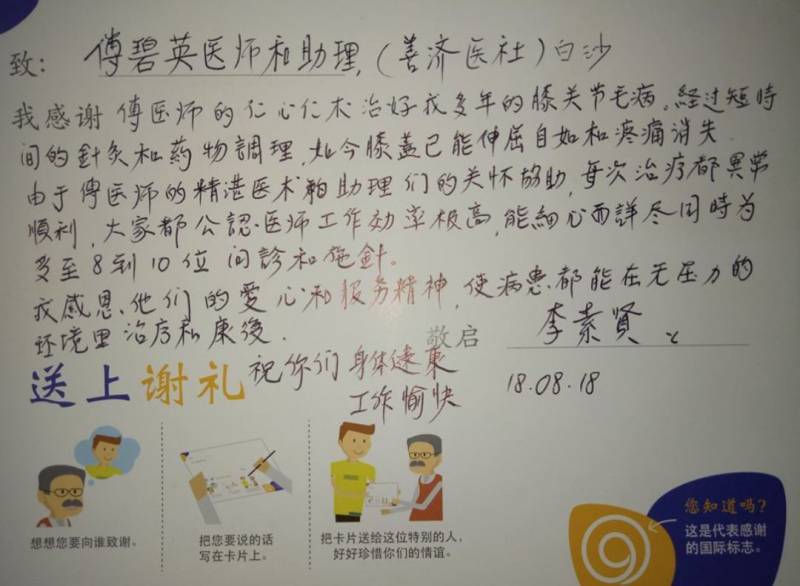 致: 傅碧英医师和助理,(善济医社)白沙
我感谢傅医师的仁心仁术治好我多年的膝关节毛病。经过短时
间的針灸和药物調理,如今膝蓋已能伸屈自如和疼痛消失.
由于傅医师的精湛医术和助理们的关怀協助,每次治疗都異常
順利,大家都公認医师工作効率极高,能細心而詳尽同時为
多至8到10位问診和施針。
我感恩他们的爱心和服务精神,使病患都能在无压力的
环境里治疗和康復.
敬启 李素賢
送上谢礼 祝你们身体健康
工作愉快
18.08.18
想想您要向谁致谢。
把您要说的话
写在卡片上。
把卡片送给这位特别的人,
好好珍惜你们的情谊。
您知道吗?
这是代表感谢
的国际标志。